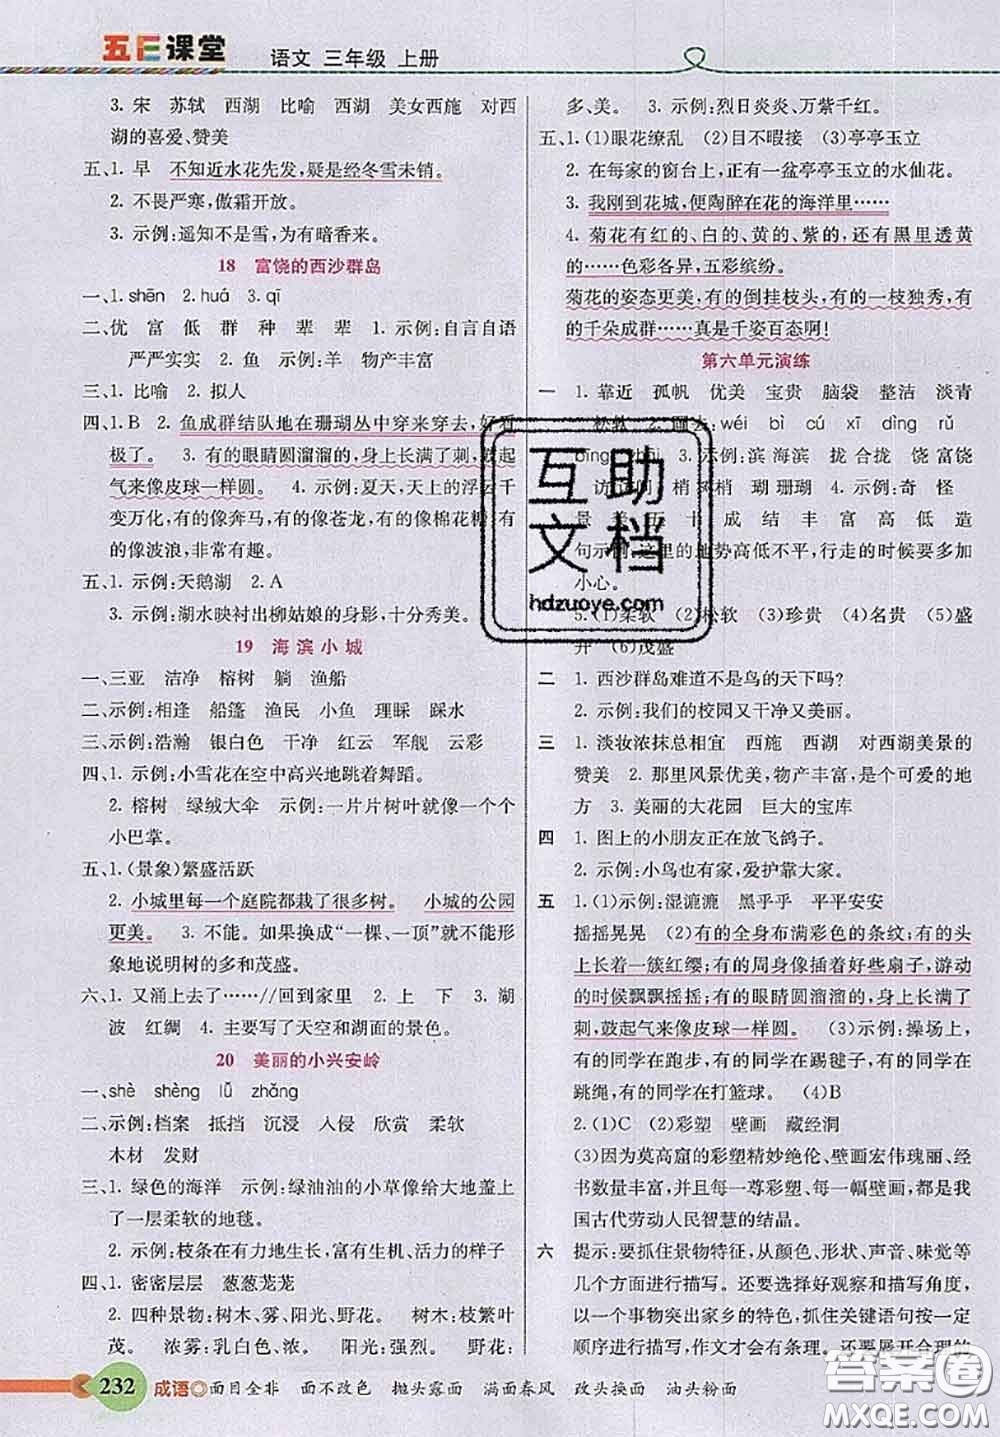 五E课堂
语文 三年级 上册
3. 宋 苏轼 西湖 比喻 西湖 美女西施 对西
湖的喜爱、赞美
五、1. 早 不知近水花先发,疑是经冬雪未销。
2. 不畏严寒,傲霜开放。
3. 示例:遥知不是雪,为有暗香来。
18 富饶的西沙群岛
一、1. shēn 2. huá 3. qī
二、优 富 低 群 种 辈 辈 1. 示例:自言自语
严严实实 2. 鱼 示例:羊 物产丰富
三、1. 比喻 2. 拟人
四、1. B 2. 鱼成群结队地在珊瑚丛中穿来穿去,好看
极了。 3. 有的眼睛圆溜溜的,身上长满了刺,鼓起
气来像皮球一样圆。 4. 示例:夏天,天上的浮云千
变万化,有的像奔马,有的像苍龙,有的像棉花糖,有
的像波浪,非常有趣。
五、1. 示例:天鹅湖 2. A
3. 示例:湖水映衬出柳姑娘的身影,十分秀美。
19 海滨小城
一、三亚 洁净 榕树 躺 渔船
二、示例:相逢 船篷 渔民 小鱼 理睬 踩水
三、示例:浩瀚 银白色 干净 红云 军舰 云彩
四、1. 示例:小雪花在空中高兴地跳着舞蹈。
2. 榕树 绿绒大伞 示例:一片片树叶就像一个个
小巴掌。
五、1. (景象)繁盛活跃
2. 小城里每一个庭院都栽了很多树。 小城的公园
更美。 3. 不能。如果换成“一棵、一顶”就不能形
象地说明树的多和茂盛。
六、1. 又涌上去了……//回到家里 2. 上 下 3. 湖
波 红绸 4. 主要写了天空和湖面的景色。
20 美丽的小兴安岭
一、shè shèng lǔ zhǎng
二、示例:档案 抵挡 沉浸 入侵 欣赏 柔软
木材 发财
三、1. 绿色的海洋 示例:绿油油的小草像给大地盖上
了一层柔软的地毯。
2. 示例:枝条在有力地生长,富有生机、活力的样子
四、1. 密密层层 葱葱茏茏
2. 四种景物:树木、雾、阳光、野花。 树木:枝繁叶
茂。 浓雾:乳白色、浓。 阳光:强烈。 野花:
多、美。 3. 示例:烈日炎炎、万紫千红。
五、1. (1)眼花缭乱 (2)目不暇接 (3)亭亭玉立
2. 在每家的窗台上,正开着一盆亭亭玉立的水仙花。
3. 我刚到花城,便陶醉在花的海洋里……
4. 菊花有红的、白的、黄的、紫的,还有黑里透黄
的……色彩各异,五彩缤纷。
菊花的姿态更美,有的倒挂枝头,有的一枝独秀,有
的千朵成群……真是千姿百态啊!
第六单元演练
一 1. 靠近 孤帆 优美 宝贵 脑袋 整洁 淡青
wéi bì cú xī dìng rǔ
3. 示例:滨 海滨 拢 合拢 饶 富饶
访 访问 梢 瑚 珊瑚 4. 示例:奇 怪
景 成 结 丰 富 高 低 造
句示例:这里的地势高低不平,行走的时候要多加
小心。
5. (1)柔软 (2)松软 (3)珍贵 (4)名贵 (5)盛
开 (6)茂盛
二 1. 西沙群岛难道不是鸟的天下吗?
2. 示例:我们的校园又干净又美丽。
三 1. 淡妆浓抹总相宜 西施 西湖 对西湖美景的
赞美 2. 那里风景优美,物产丰富,是个可爱的地
方 3. 美丽的大花园 巨大的宝库
四 1. 图上的小朋友正在放飞鸽子。
2. 示例:小鸟也有家,爱护靠大家。
五 1. (1)示例:湿漉漉 黑乎乎 平平安安
摇摇晃晃 (2)有的全身布满彩色的条纹;有的头
上长着一簇红缨;有的周身像插着好些扇子,游动
的时候飘飘摇摇;有的眼睛圆溜溜的,身上长满了
刺,鼓起气来像皮球一样圆。 (3)示例:操场上,
有的同学在跑步,有的同学在踢毽子,有的同学在
跳绳,有的同学在打篮球。 (4)B
2. (1)C (2)彩塑 壁画 藏经洞
(3)因为莫高窟的彩塑精妙绝伦、壁画宏伟瑰丽、经
书数量丰富,并且每一尊彩塑、每一幅壁画,都是我
国古代劳动人民智慧的结晶。
六 提示:要抓住景物特征,从颜色、形状、声音、味觉等
几个方面进行描写。还要选择好观察和描写角度,
以一个事物突出家乡的特色,抓住关键语句按一定
顺序进行描写,作文才会有条理。还要展开合理的
互助
文档
hdzuoye.com
232 成语 面目全非 面不改色 抛头露面 满面春风 改头换面 油头粉面
答案圈
MXQE.COM